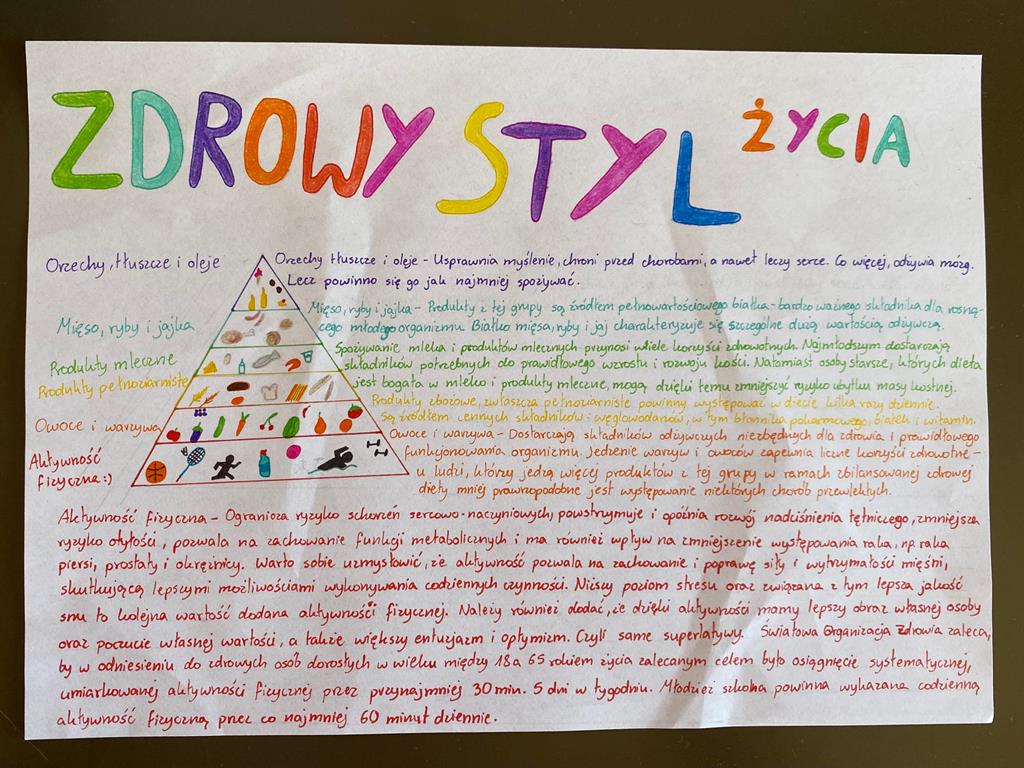 ZDROWY STYL ŻYCIA
Orzechy, tłuszcze i oleje
Orzechy tłuszcze i oleje - Usprawnia myślenie, chroni przed chorobami, a nawet leczy serce. Co więcej, odżywia mózg.
Lecz powinno się go jak najmniej spożywać.
Mięso, ryby i jajka
Mięso, ryby i jajka - Produkty z tej grupy są źródłem pełnowartościowego białka - bardzo ważnego składnika dla rosną-
cego młodego organizmu Białko mięsa, ryby i jaj charakteryzuje się szczególne dużą wartością odżywczą.
Produkty mleczne
Spożywanie mleka i produktów mlecznych przynosi wiele korzyści zdrowotnych. Najmłodszym dostarczają
składników potrzebnych do prawidłowego wzrostu i rozwoju kości. Natomiast osoby starsze, których dieta
jest bogata w mleko i produkty mleczne, mogą dzięki temu zmniejszyć ryzyko ubytku masy kostnej.
Produkty pełnoziarniste
Produkty zbożowe, zwłaszcza pełnoziarniste powinny występować w diecie kilka razy dziennie.
Są źródłem cennych składników: węglowodanów, w tym błonnika pokarmowego, białek i witamin.
Owoce i warzywa
Owoce i warzywa - Dostarczają składników odżywczych niezbędnych dla zdrowia i prawidłowego
funkcjonowania organizmu. Jedzenie warzyw i owoców zapewnia liczne korzyści zdrowotne -
u ludzi, którzy jedzą więcej produktów z tej grupy w ramach zbilansowanej zdrowej
diety mniej prawdopodobne jest występowanie niektórych chorób przewlekłych.
Aktywność
fizyczna:)
Aktywność fizyczna - Ogranicza ryzyko schorzeń sercowo-naczyniowych, powstrzymuje i opóźnia rozwój nadciśnienia tętniczego, zmniejsza
ryzyko otyłości, pozwala na zachowanie funkcji metabolicznych i ma również wpływ na zmniejszenie występowania raka, np. raka
piersi, prostaty i okrężnicy. Warto sobie uzmysłowić, że aktywność pozwala na zachowanie i poprawę siły i wytrzymałości mięśni,
skutkującą lepszymi możliwościami wykonywania codziennych czynności. Niższy poziom stresu oraz związana z tym lepsza jakość
snu to kolejna wartość dodana aktywności fizycznej. Należy również dodać, że dzięki aktywności mamy lepszy obraz własnej osoby
oraz poczucie własnej wartości, a także większy entuzjazm i optymizm. Czyli same superlatywy. Światowa Organizacja Zdrowia zaleca,
by w odniesieniu do zdrowych osób dorosłych w wieku między 18 a 65 rokiem życia zalecanym celem było osiągnięcie systematycznej,
umiarkowanej aktywności fizycznej przez przynajmniej 30 min. 5 dni w tygodniu. Młodzież szkolna powinna wykazana codzienną
aktywność fizyczną przez co najmniej 60 minut dziennie.